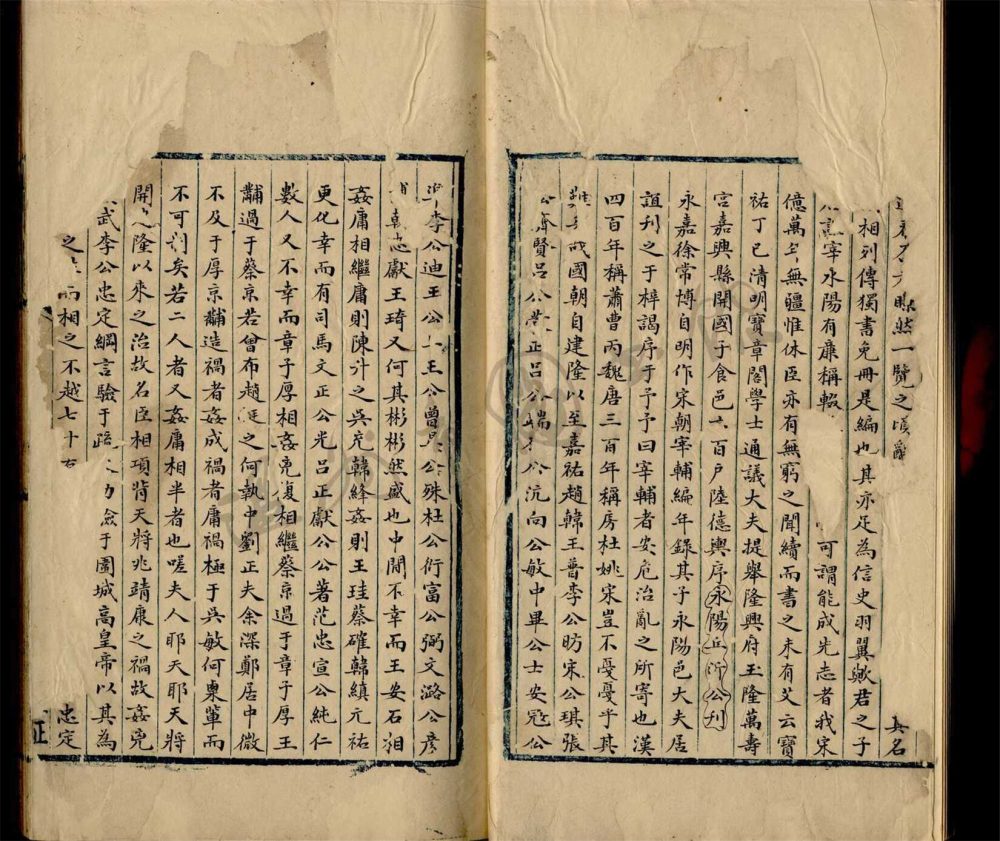 然一覽之頃辭 具名
相列傳獨書免冊是編也其亦足為信史羽翼歟君之子
宰水陽有廉稱輟 可謂能成先志者我宋
億萬年無疆惟休臣亦有無窮之聞續而書之未有艾云寶
祐丁巳清明寶章閣學士通議大夫提舉隆興府玉隆萬壽
宮嘉興縣開國子食邑六百戶陸德輿序永陽
永嘉徐常博自明作宋朝宰輔編年錄其子永陽邑大夫居
誼刊之于梓謁序于予予曰宰輔者安危治亂之所寄也漢
四百年稱蕭曹丙魏唐三百年稱房杜姚宋豈不憂憂乎其
難哉我國朝自建隆以至嘉祐趙韓王普李公昉宋公琪張
公齊賢呂公蒙正呂公端李公沆向公敏中畢公士安寇公
準李公迪王公旦王公曾吳公殊杜公衍富公弼文潞公彥
韓忠獻王琦又何其彬彬然盛也中間不幸而王安石相
姦庸相繼庸則陳升之吳充韓絳姦則王珪蔡確韓縝元祐
更化幸而有司馬文正公光呂正獻公公著范忠宣公純仁
數人又不幸而章子厚相姦兇復相繼蔡京過于章子厚王
黼過于蔡京若曾布趙挺之何執中劉正夫余深鄭居中微
不及于厚京黼造禍者姦成禍者庸禍極于吳敏何㮚輩而
不可救矣若二人者又姦庸相半者也嗟夫人耶天耶天將
開建隆以來之治故名臣相項背天將兆靖康之禍故姦兇
武李公忠定綱言驗于 力 于圍城高皇帝以其為
之 而相之不越七十 忠定